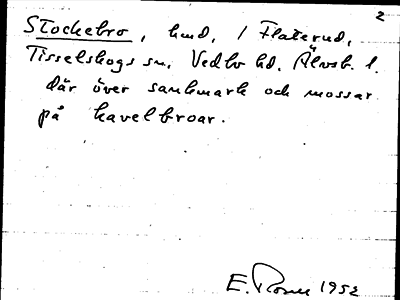 2
Stockebro, hmd, / Flaterud,
Tisselskogs sn, Vedbo hd. Älvsb. l.
där över sankmark och mossar
på kavelbroar.
E. 1952